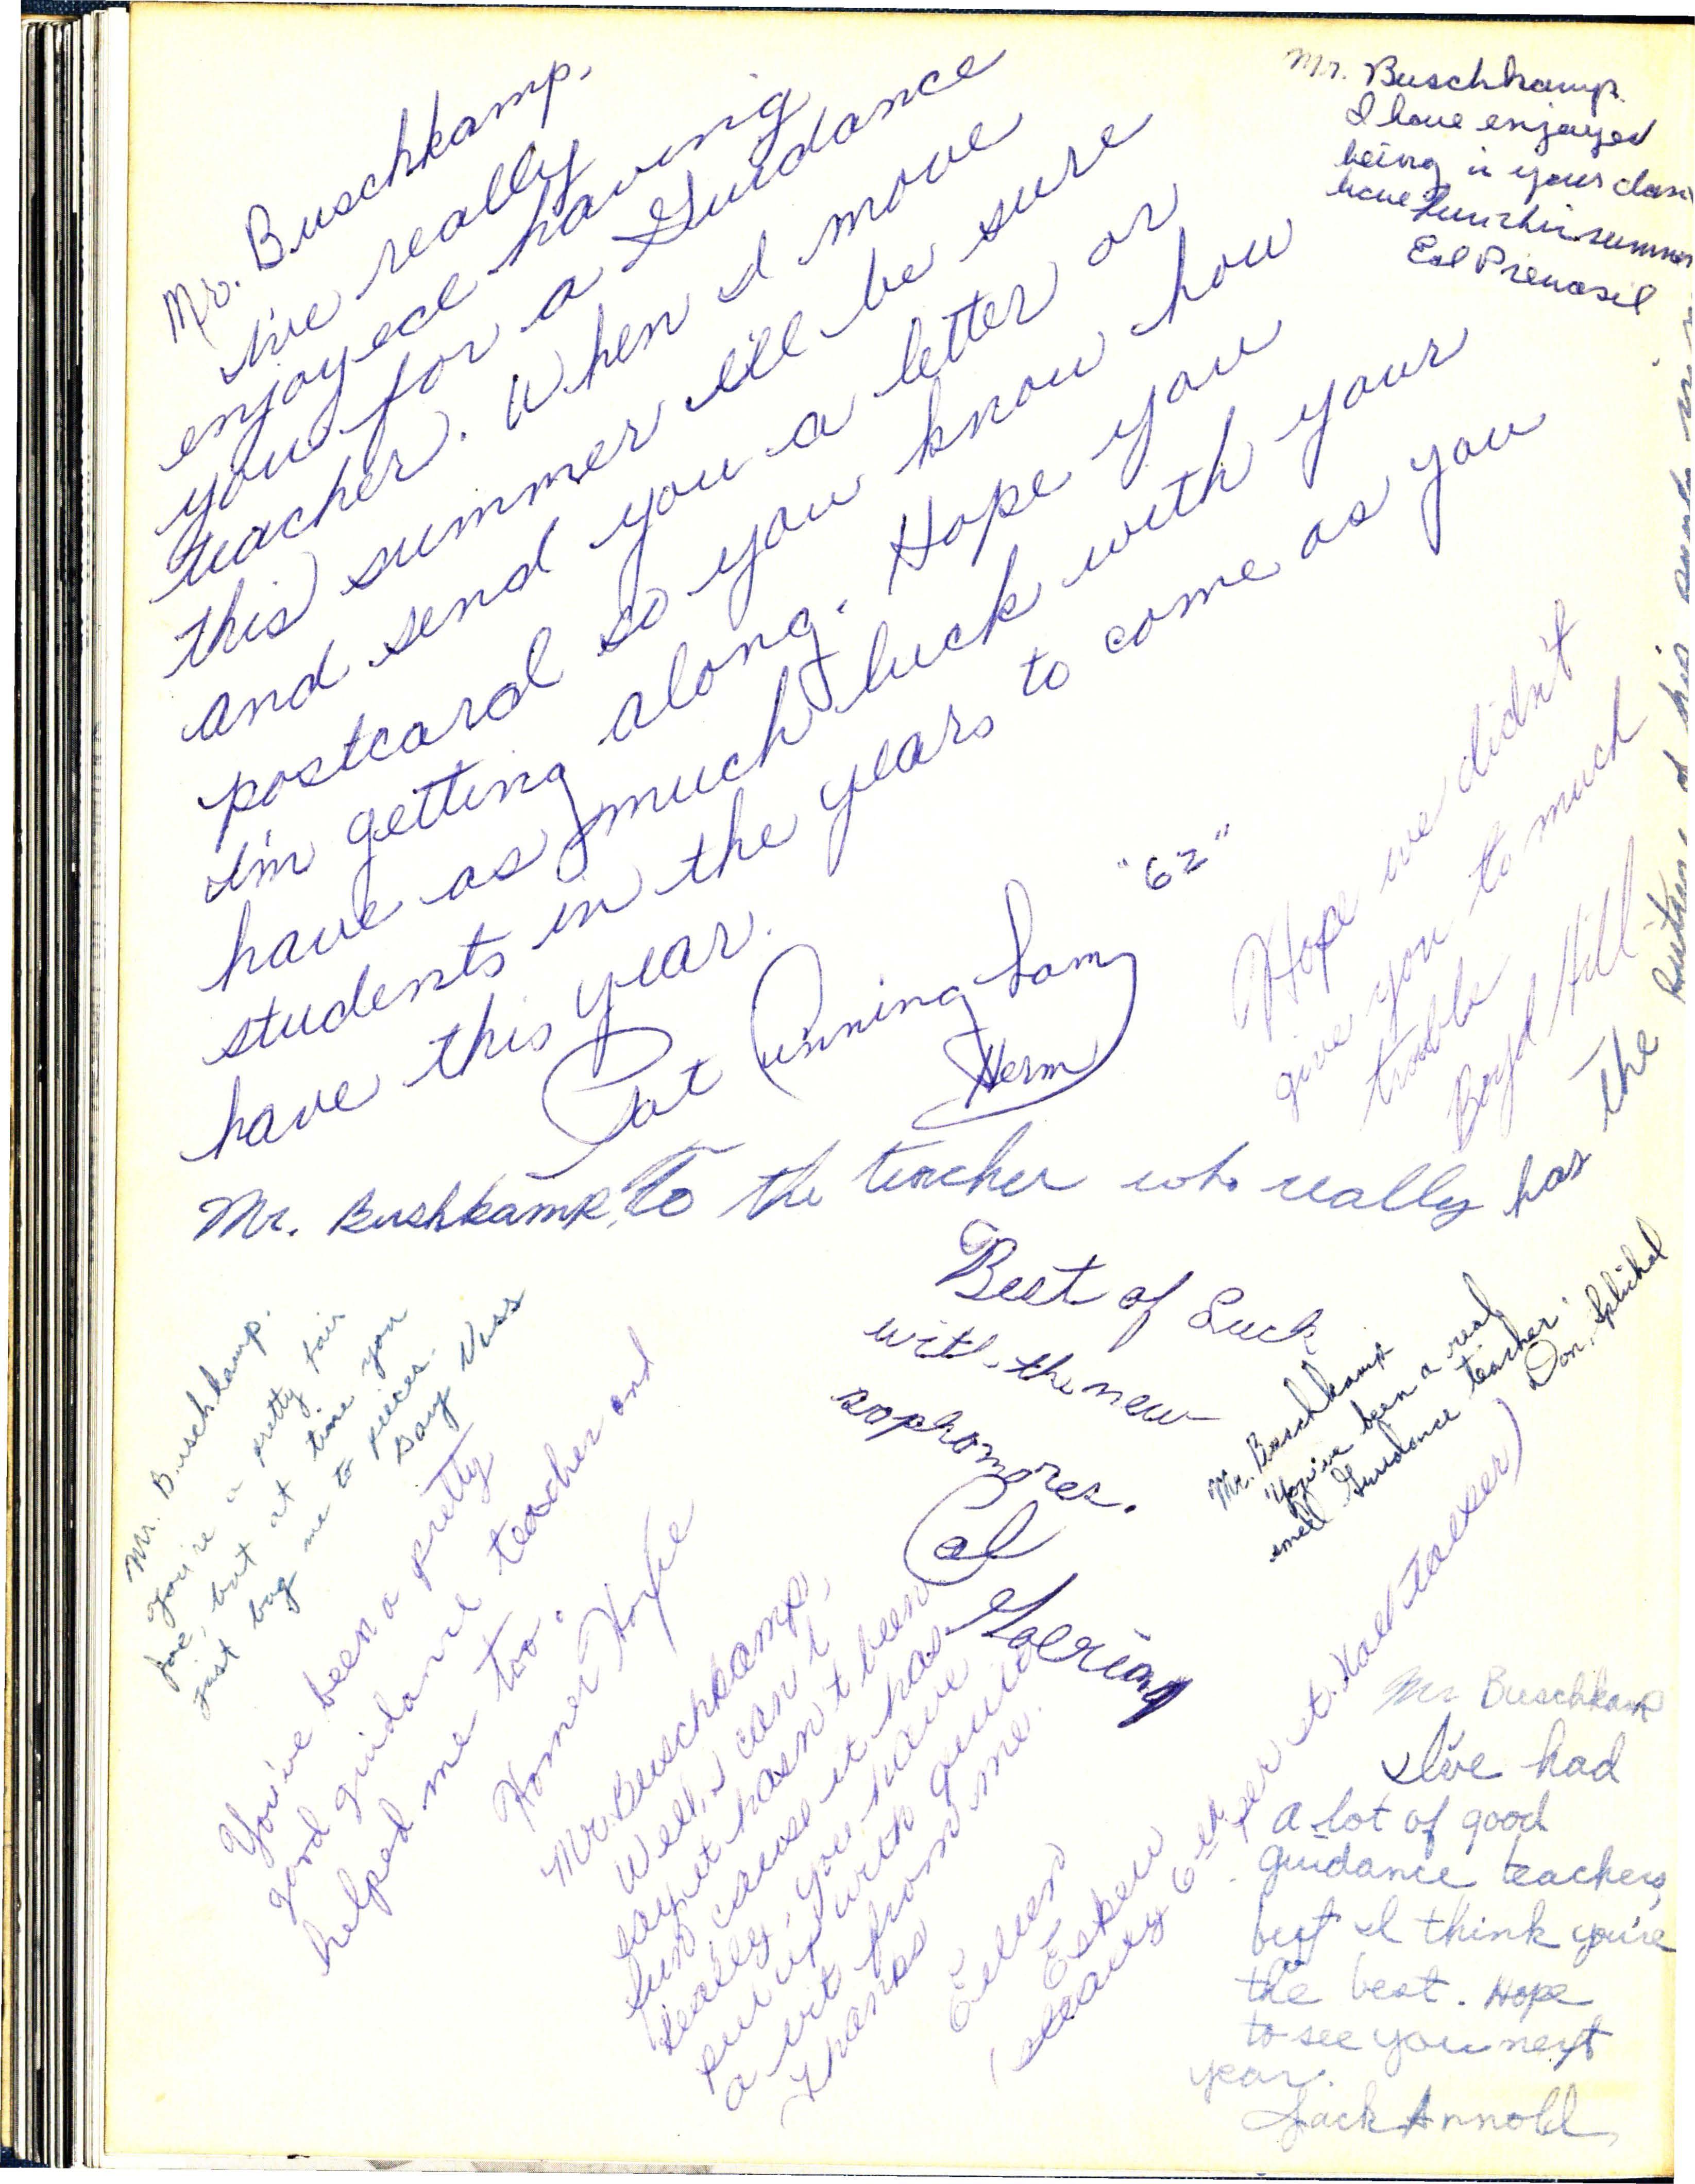 Mr. Buschkamp,
I've really
enjoyed having
you for a Guidance
teacher. When I move
this summer I'll be sure
and send you a letter or
postcard so you know how
I'm getting along. Hope you
have as much luck with your
students in the years to come as you
have this year.
Pat Cunningham
Herm
"62"
Mr. Buschkamp
I have enjoyed
being in your class
have fun this summer
Ed
Hope we didn't
give you to much
trouble
Boyd Hill
Mr. Bushkamp, To the teacher who really has the
of his
Best of Luck
with the new
sophomores.
Cal Goering
Mr. Buschkamp
You've been a real
smell Guidance teacher
Don Splichal
Mr. Buschkamp.
You're a pretty fair
joe, but at time you
just bug me to pieces.
Gary Voss
You've been a pretty
good guidance teacher and
helped me too.
Homer Hoyle
Mr. Buschkamp,
Well, I can't
say it hasn't been
fun cause it has
really, you have
put up with quite
a bit from me.
Thanks
Eileen
Eskew
(steady 6th per st. hall talker)
Mr. Buschkamp
I've had
a lot of good
guidance teachers,
but I think you're
the best. Hope
to see you next
year.
Jack Annold